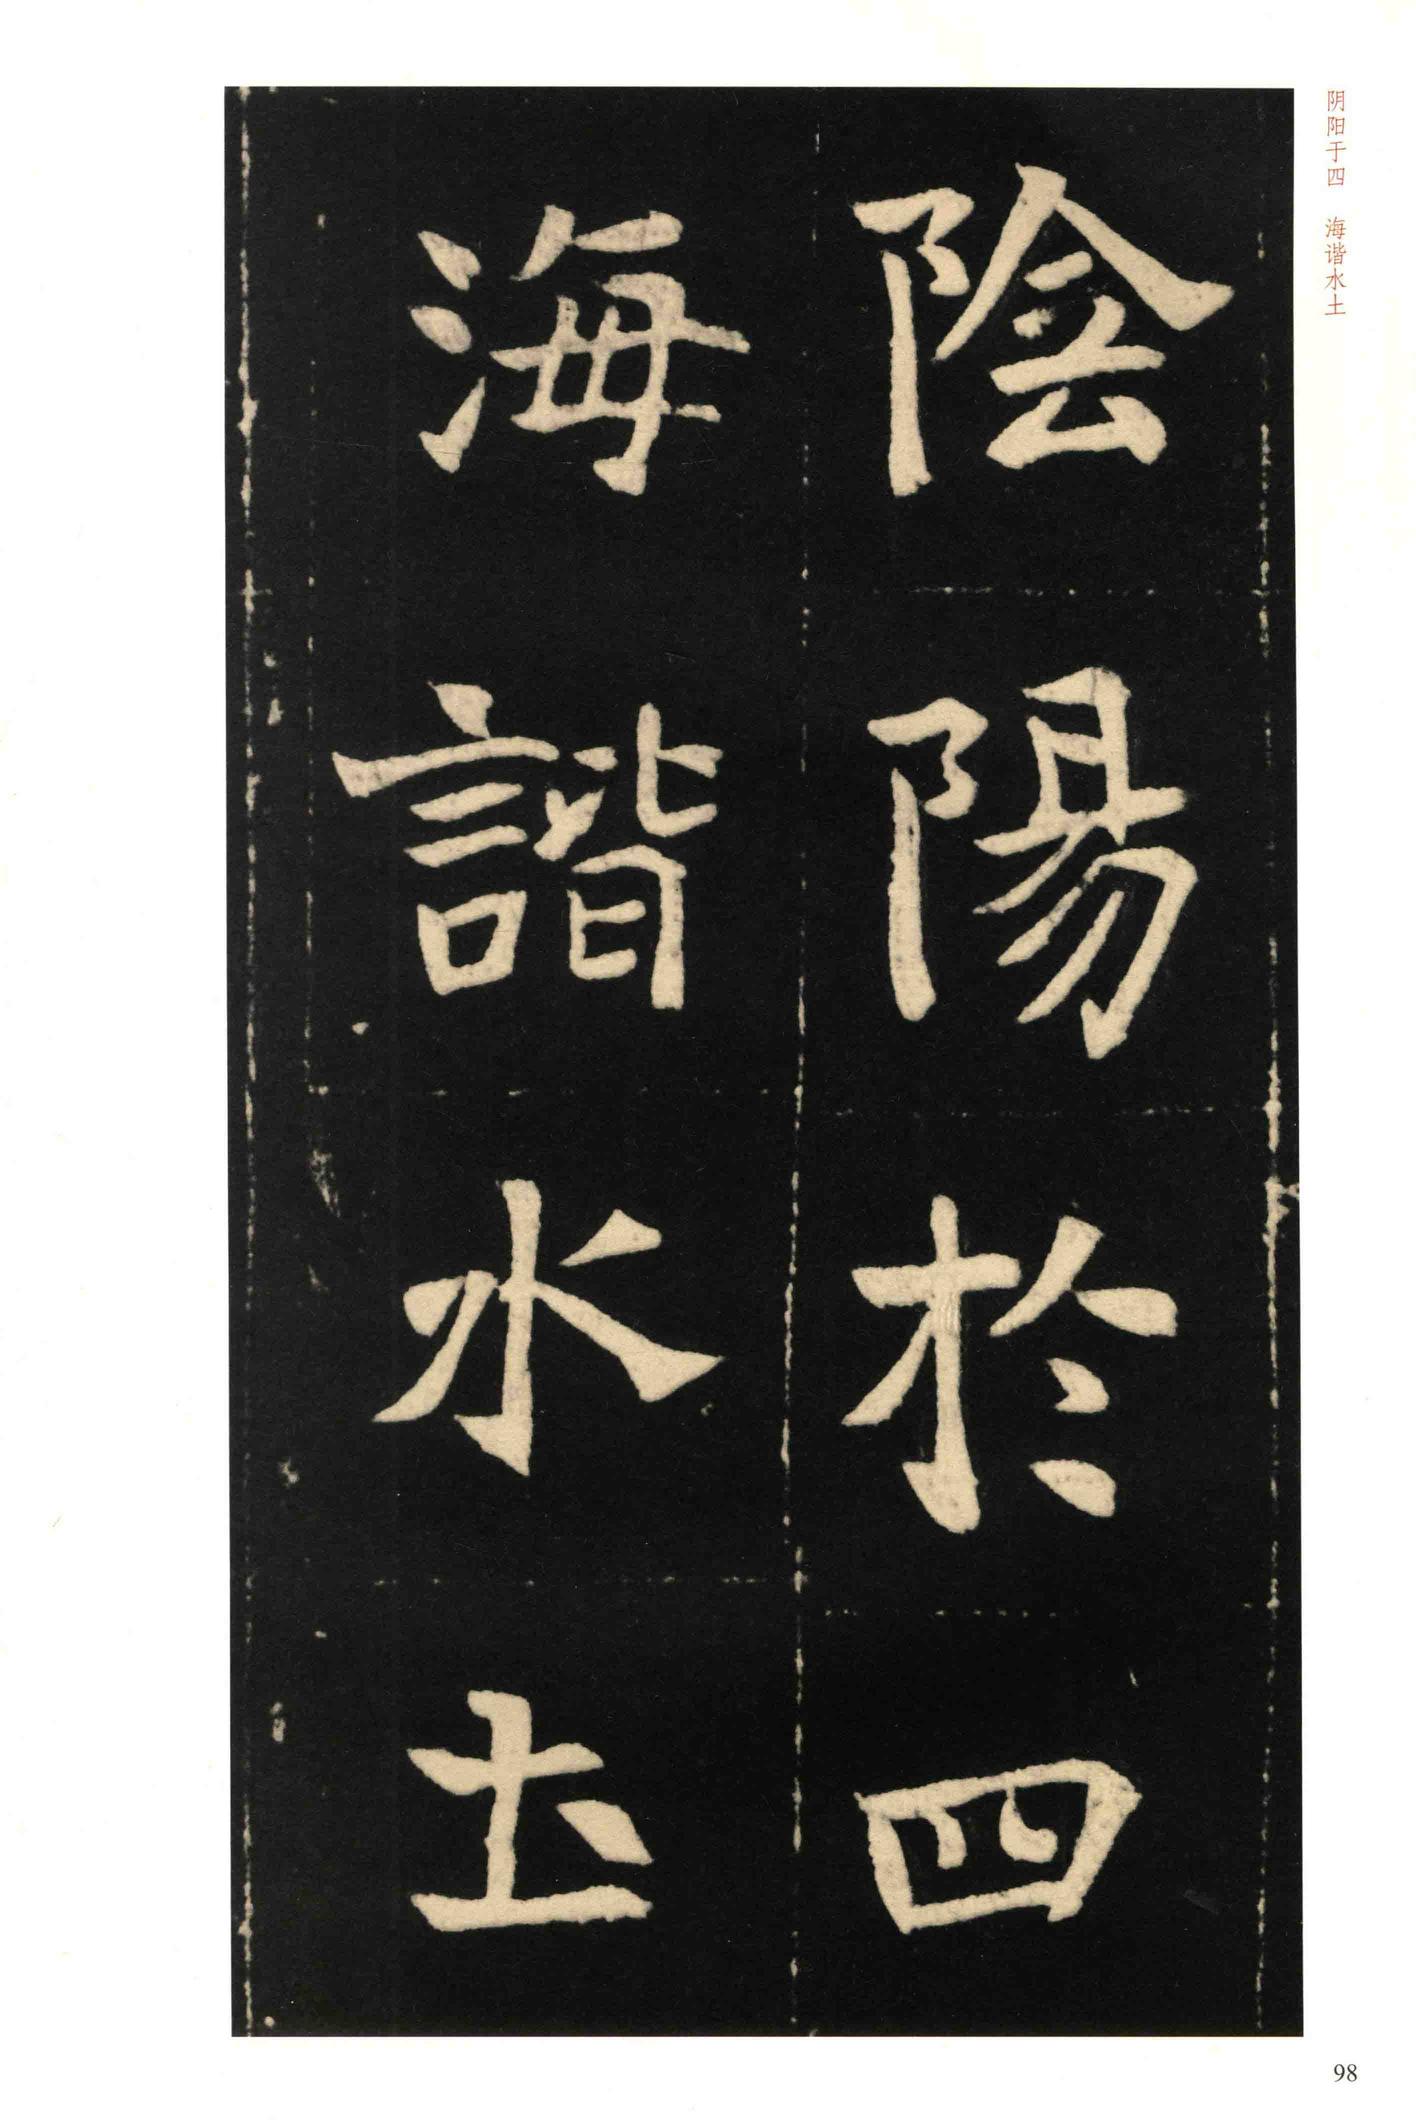 阴阳于四　海谐水土
陰陽於四
海諧水土
98